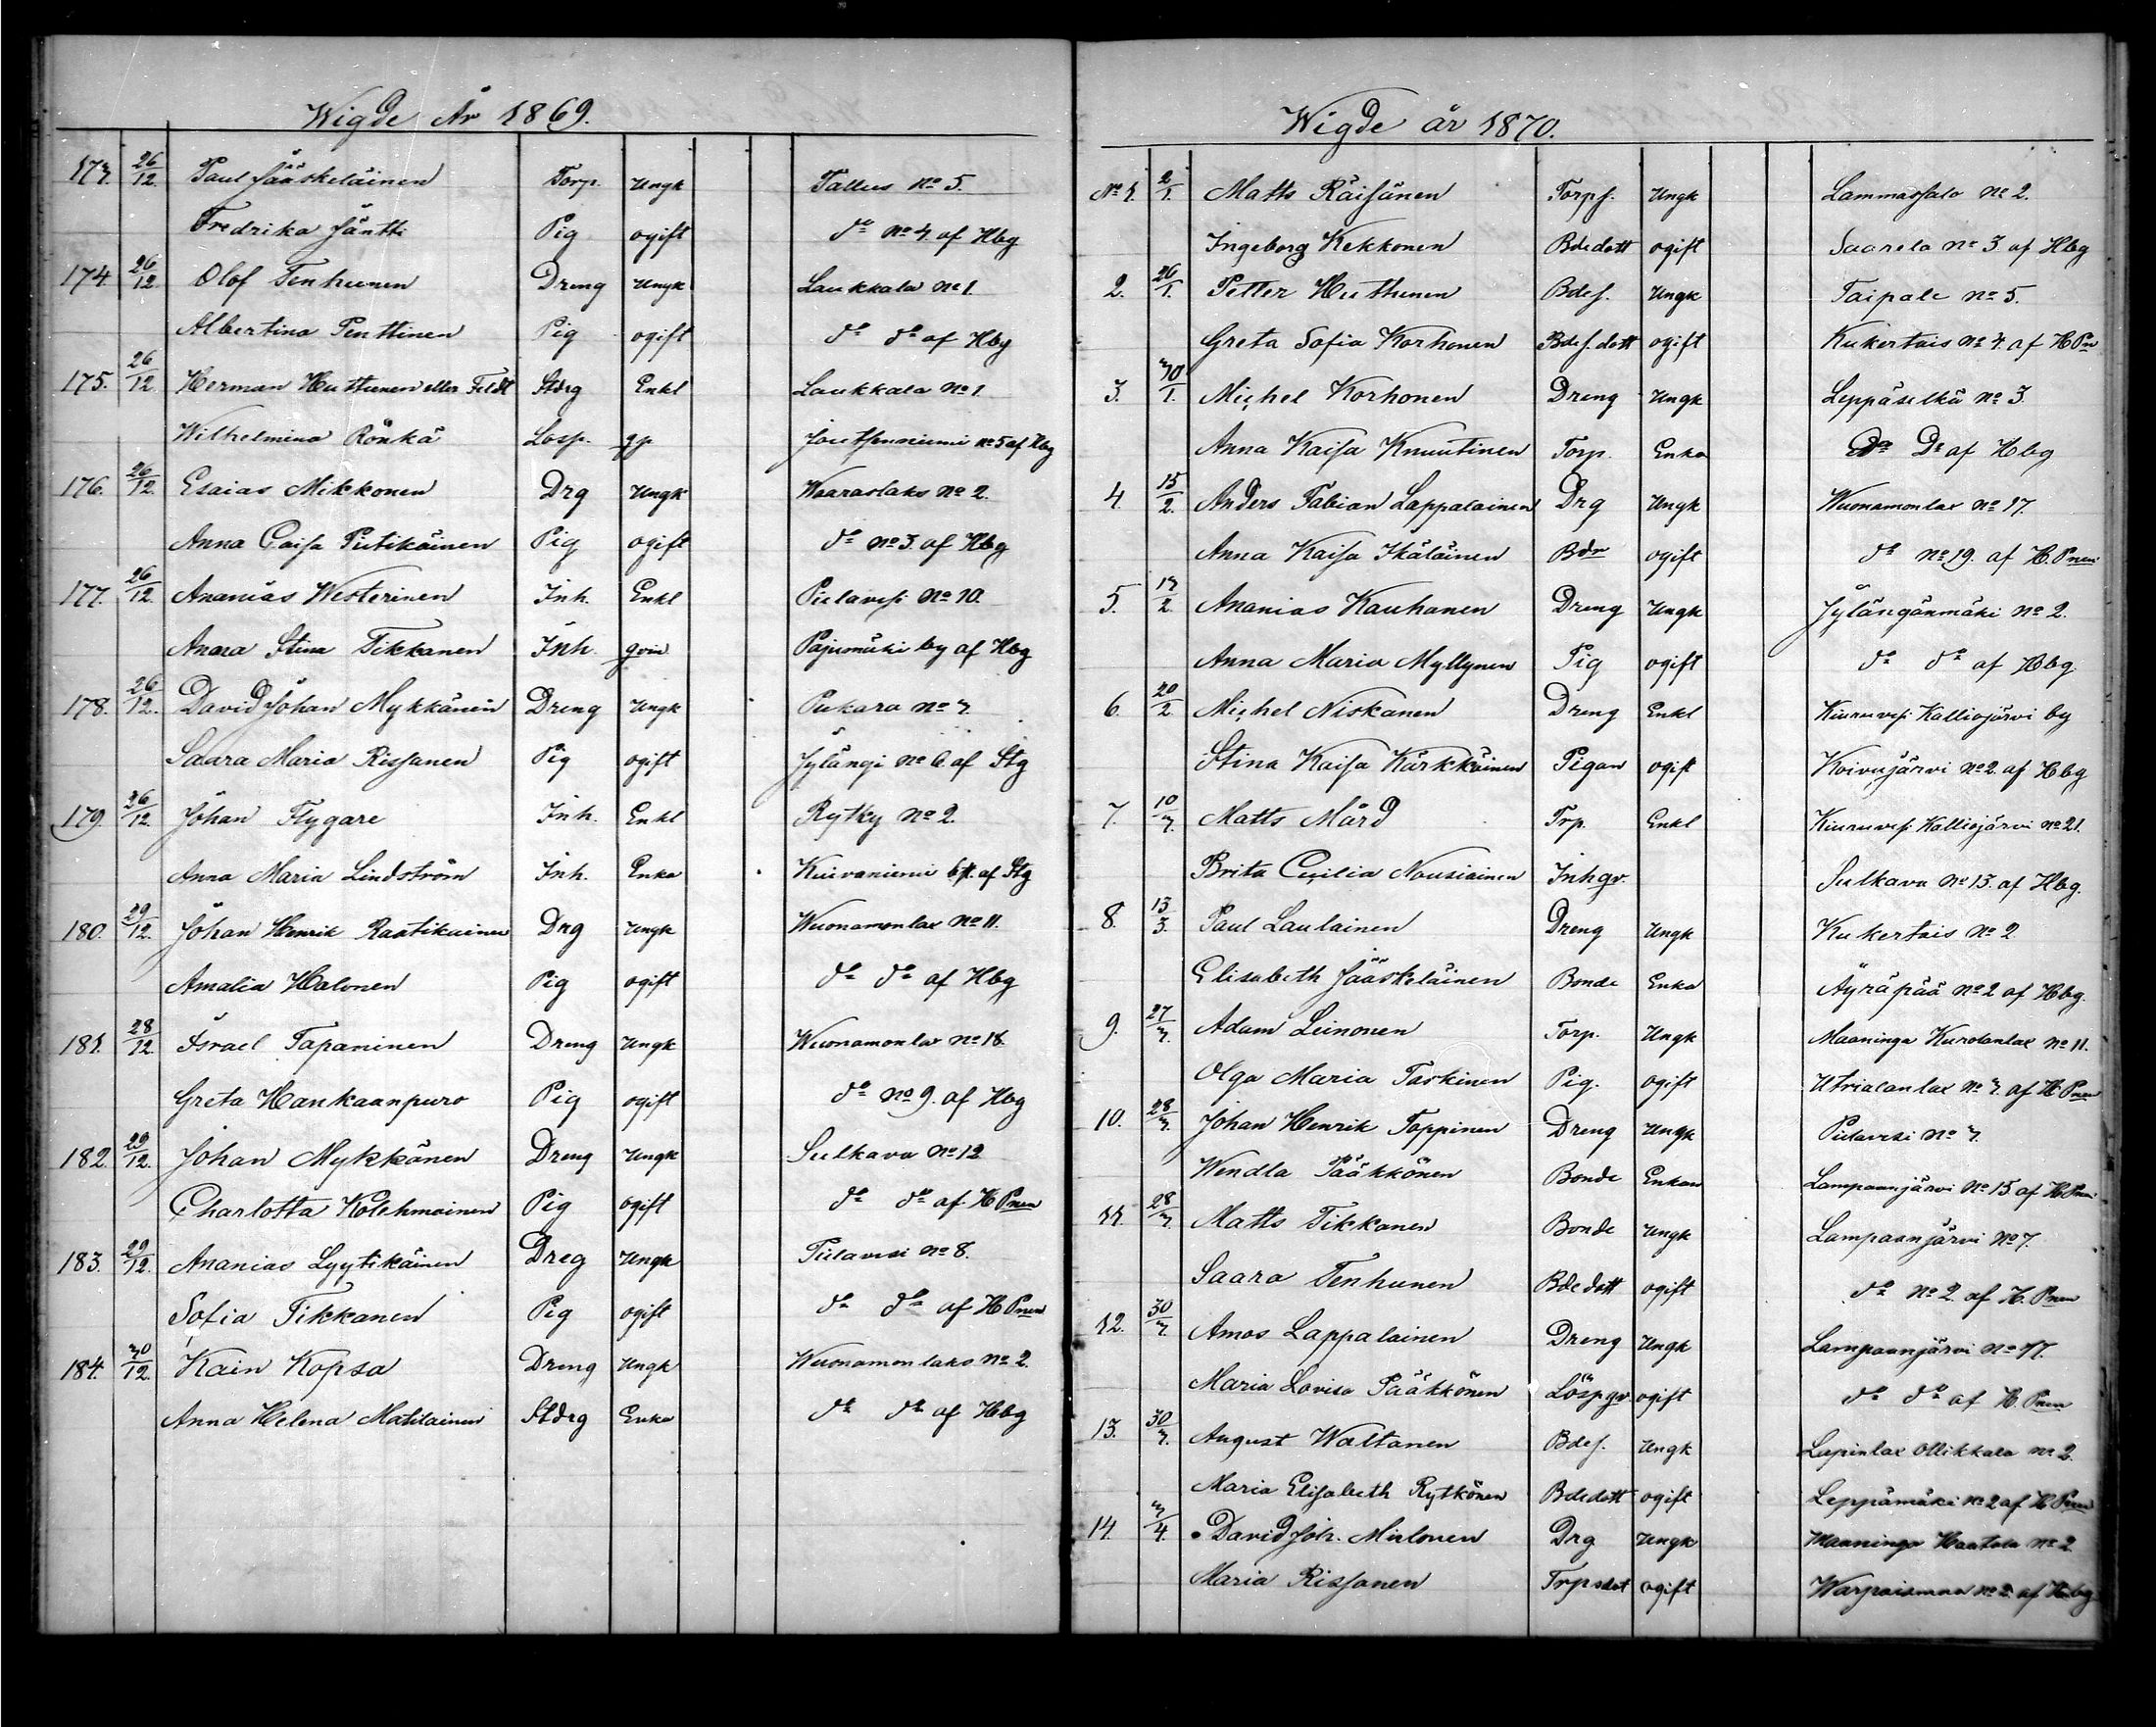 Wigde År 1869.
173. 26/12. Paul Jääskeläinen Torp. Ungk Tallus No 5.
Fredrika Jäntti Pig ogift do No 4. af Hbg
174. 26/12. Olof Tenhunen Dreng Ungk Laukkala No 1.
Albertina Penttinen Pig ogift do do af Hbg
175. 26/12. Herman Huttunen eller Feldt Stdrg Enkl Laukkala No 1.
Wilhelmina Rönkä Losp. gp Joutsenniemi No 5 af Hbg
176. 26/12. Esaias Mikkonen Drg Ungk Waaraslaks No 2.
Anna Caisa Putikäinen Pig ogift do No 3. af Hbg
177. 26/12. Ananias Westerinen Inh. Enkl Pielavesi No 10.
Anna Stina Tikkanen Inh. qvin Pajumäki by af Hbg
178. 26/12. David Johan Mykkänen Dreng Ungk Pukara No 3.
Saara Maria Rissanen Pig ogift Jylängi No 6 af Stg
179. 26/12. Johan Flygare Inh. Enkl Rytky No 2.
Anna Maria Lindström Inh. Enka Kuivaniemi af Stg
180. 29/12. Johan Henrik Raatikainen Drg Ungk Wuonamonlax No 11.
Amalia Halonen Pig ogift do do af Hbg
181. 28/12. Israel Tapaninen Dreng Ungk Wuonamonlax No 18.
Greta Hankaanpuro Pig ogift do No 9. af Hbg
182. 29/12. Johan Mykkänen Dreng Ungk Sulkava No 12
Charlotta Kolehmainen Pig ogift do do af H Pnen
183. 29/12. Ananias Lyytikäinen Dreg Ungk Pielavesi No 8.
Sofia Tikkanen Pig ogift do do af H Pnen
184. 30/12. Kain Kopsa Dreng Ungk Wuonamonlaks No 2.
Anna Helena Matilainen Stdrg Enka do do af Hbg
Wigde år 1870.
No 1. 2/1. Matts Räisänen Torps. Ungk Lammassalo No 2.
Ingeborg Kekkonen Bdedott ogift Saarela No 3 af Hbg
2. 26/1. Petter Huttunen Bdes. Ungk Taipale No 5.
Greta Sofia Korhonen Bdes. dott ogift Kukertais No 4. af H Pn
3. 30/1. Michel Korhonen Dreng Ungk Leppäselkä No 3.
Anna Kaisa Knuutinen Torp. Enka Do Do af Hbg
4. 15/2. Anders Fabian Lappalainen Drg Ungk Wuonamonlax No 17.
Anna Kaisa Ikäläinen Bdr ogift do No 19. af H. Pnen
5. 17/2. Ananias Kauhanen Dreng Ungk Jylängänmäki No 2.
Anna Maria Myllynen Pig ogift do do af Hbg.
6. 20/2. Michel Niskanen Dreng Enkl Kiuruvesi Kalliojärvi by
Stina Kaisa Kärkkäinen Pigan ogift Koivujärvi No 2. af Hbg
7. 10/3. Matts Mård Trp. Enkl Kiuruvesi Kalliojärvi No 21.
Brita Cecilia Nousiainen Inhqv. Sulkava No 13. af Hbg.
8. 13/3. Paul Laulainen Dreng Ungk Kukertais No 2
Elisabeth Jääskeläinen Bonde Enka Äyräpää No 2 af Hbg.
9. 27/3. Adam Leinonen Torp. Ungk Maaninga Kurolanlax No 11.
Olga Maria Taskinen Pig. ogift Utrialanlax No 3. af H Pnen
10. 28/3. Johan Henrik Toppinen Dreng Ungk Pielavesi No 3.
Wendla Pääkkönen Bonde Enkan Lampaanjärvi No 15 af H Pnen
11. 28/3. Matts Tikkanen Bonde Ungk Lampaanjärvi No 7.
Saara Tenhunen Bdedott ogift do No 2. af H. Pnen
12. 30/3. Amos Lappalainen Dreng Ungk Lampaanjärvi No 17.
Maria Lovisa Pääkkönen Löspqv ogift do do af H. Pnen
13. 30/3. August Waltanen Bdes. Ungk Lapinlax Ollikkala No 2.
Maria Elisabeth Rytkönen Bdedott ogift Leppämäki No 2 af H Pnen
14. 3/4. David Joh. Miilonen Drg Ungk Maaninga Haatala No 2
Maria Rissanen Trpsdot ogift Warpaismaa No 2. af Hbg.